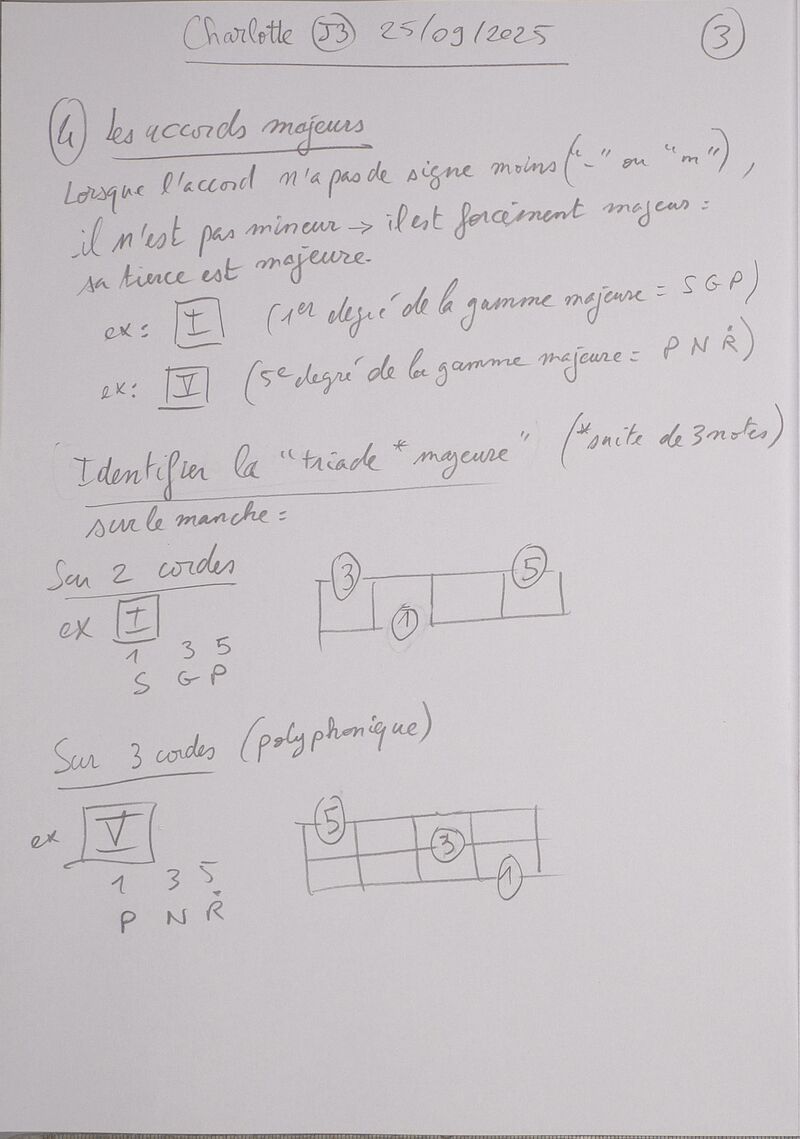 Charlotte J3 25/09/2025 3
4 Les accords majeurs
Lorsque l'accord n'a pas de signe moins ("-" ou "m"),
il n'est pas mineur → il est forcément majeur :
sa tierce est majeure.
ex: I (1er degré de la gamme majeure = S G P)
ex: V (5e degré de la gamme majeure = P N Ṙ)
Identifier la "triade * majeure" (*suite de 3 notes)
sur le manche =
Sur 2 cordes
ex I
1 3 5
S G P
3 5
1
Sur 3 cordes (polyphonique)
ex V
1 3 5
P N Ṙ
5
3
1